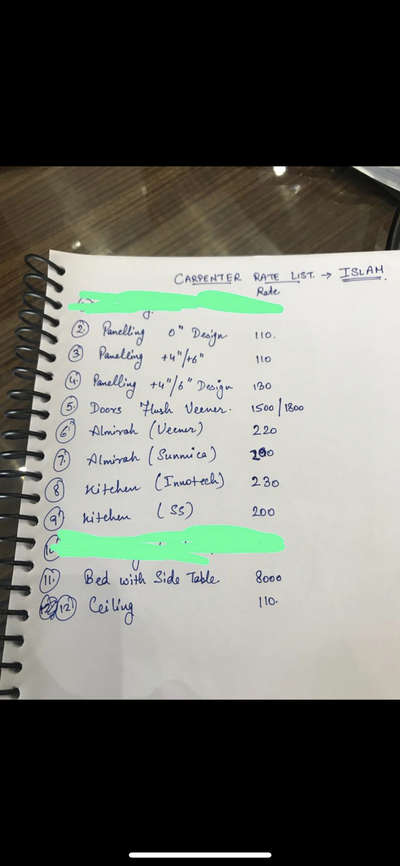 CARPENTER RATE LIST. → ISLAM.
Rate
② Panelling 0" Design 110.
③ Panelling +4"/+6" 110
④ Panelling +4"/6" Design 130
⑤ Doors Flush Veener. 1500/1800
⑥ Almirah (Veener) 220
⑦ Almirah (Sunmica)
⑧ Kitchen (Innotech) 230
⑨ Kitchen (SS) 200
⑪ Bed with Side Table 8000
⑫ Ceiling 110.